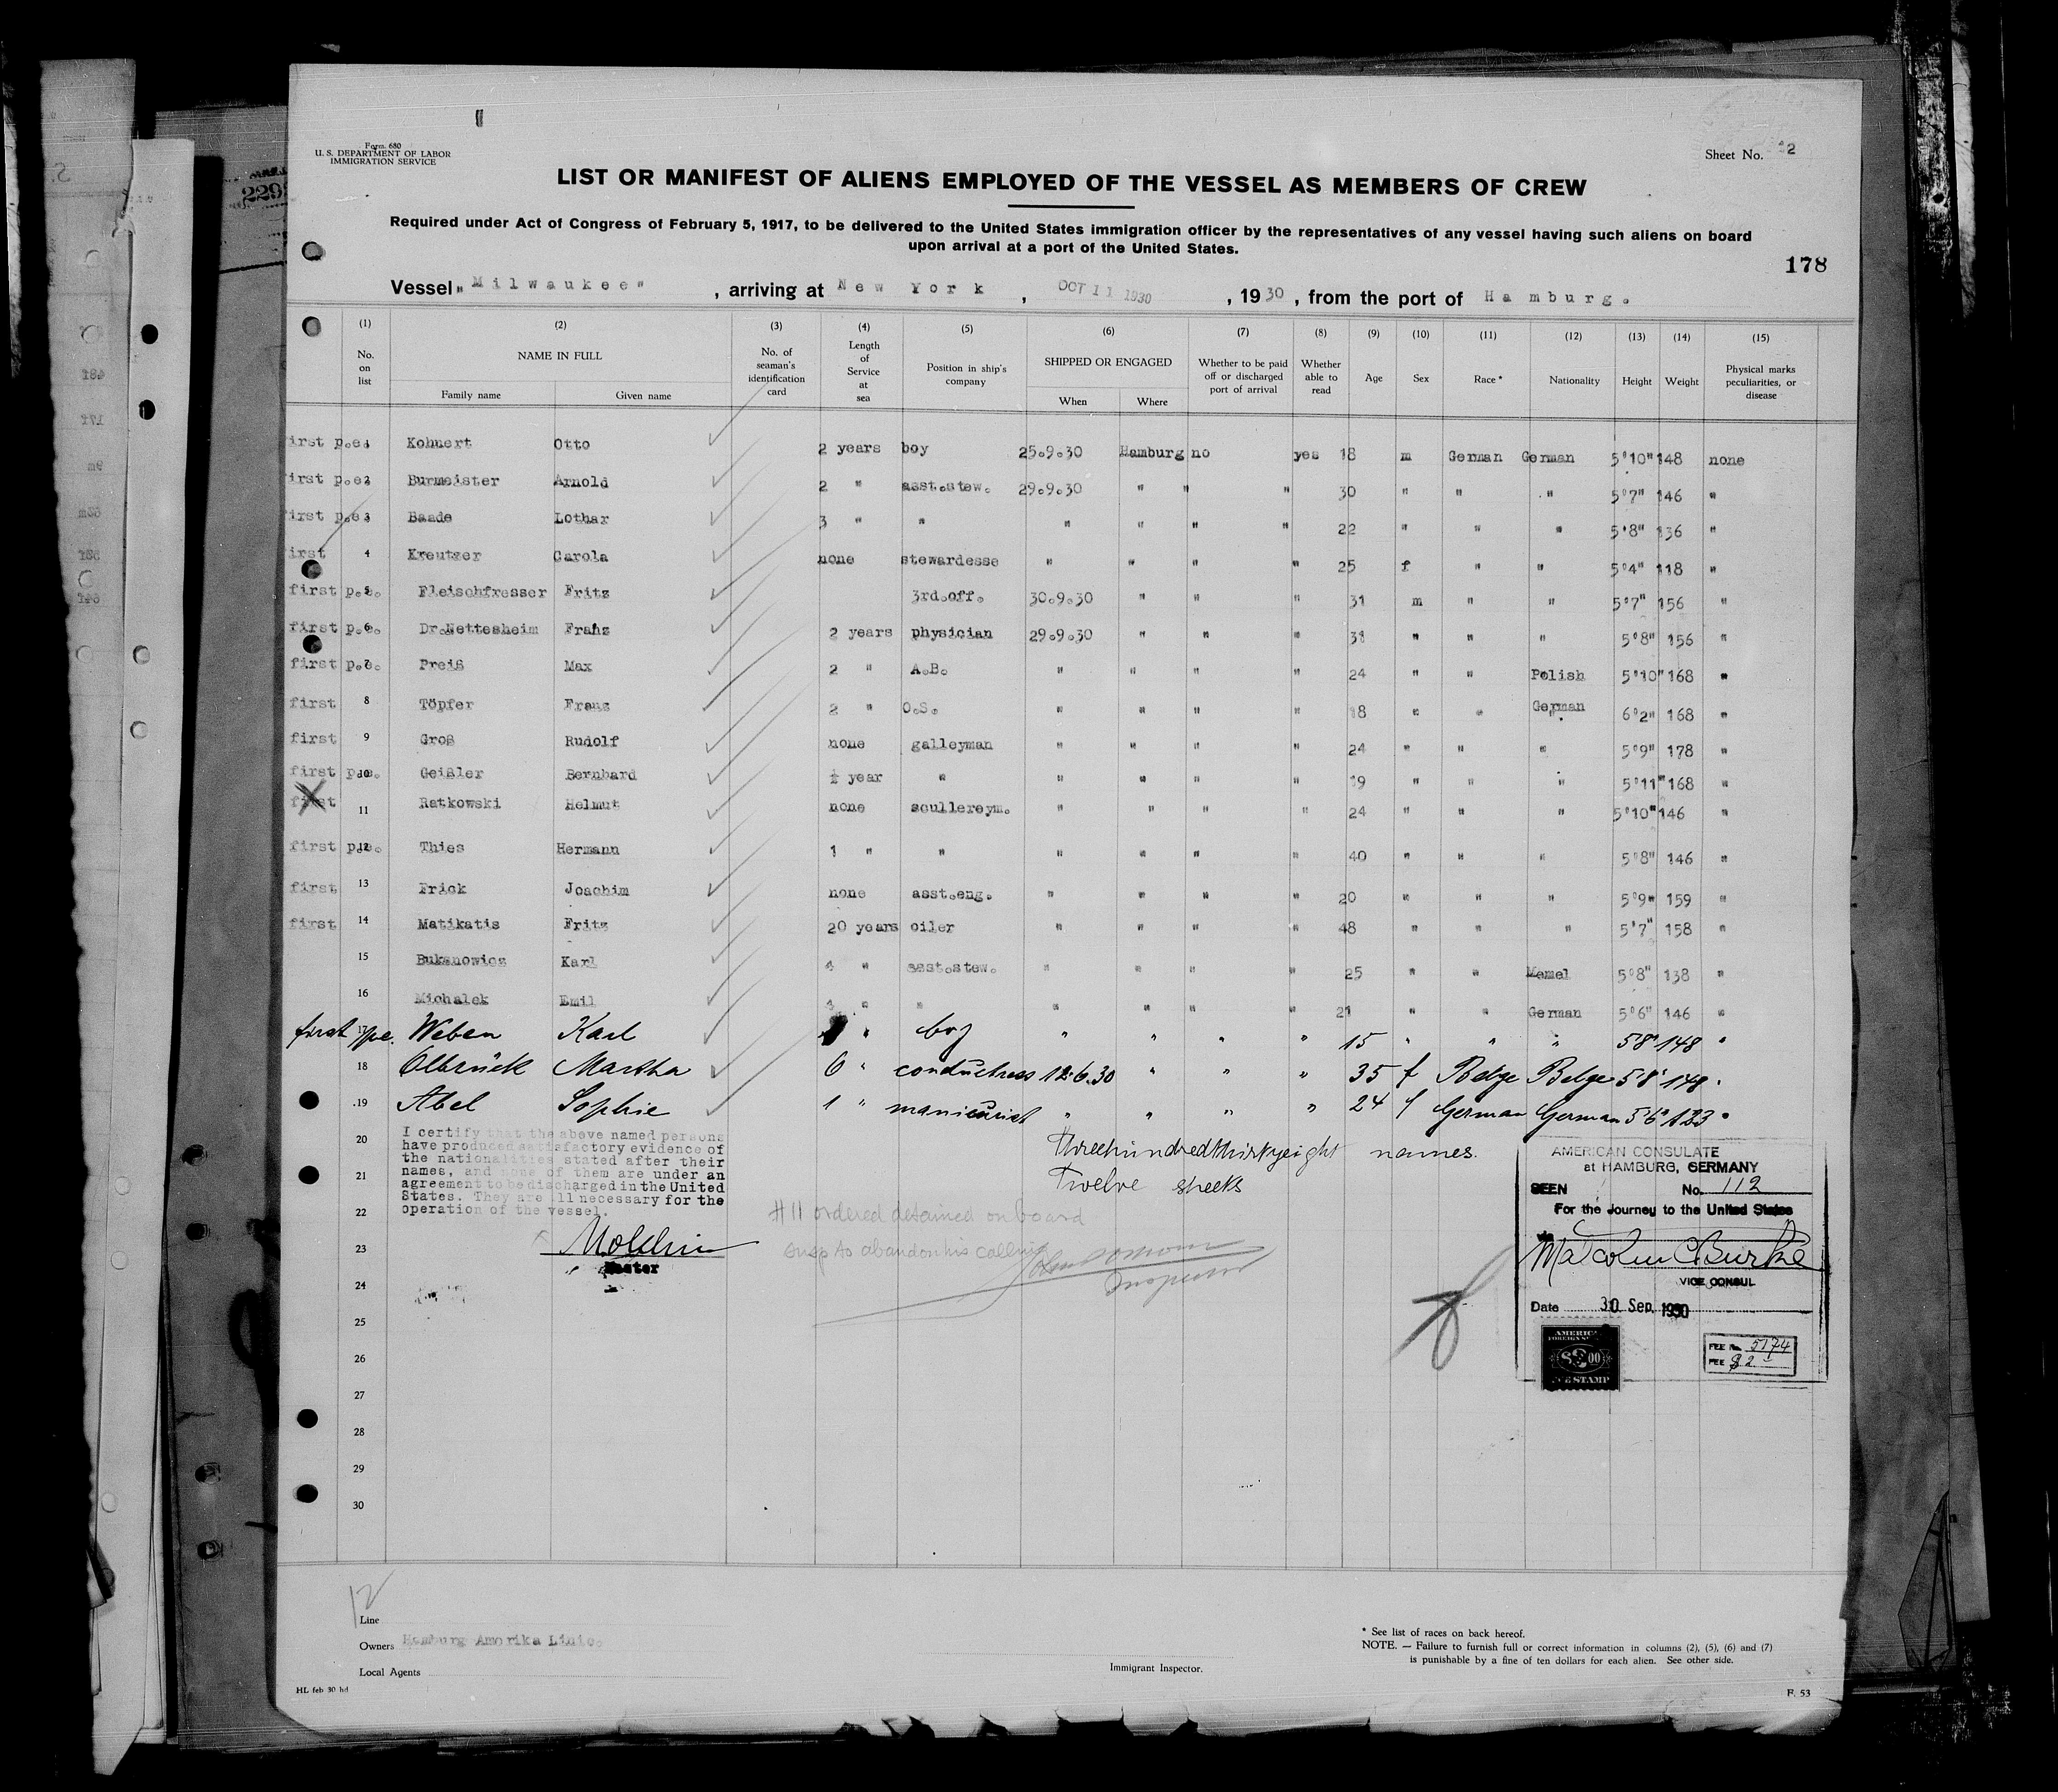 Form 680
U. S. DEPARTMENT OF LABOR
IMMIGRATION SERVICE
Sheet No. 12
LIST OR MANIFEST OF ALIENS EMPLOYED OF THE VESSEL AS MEMBERS OF CREW
Required under Act of Congress of February 5, 1917, to be delivered to the United States immigration officer by the representatives of any vessel having such aliens on board
upon arrival at a port of the United States.
178
Vessel "Milwaukee" , arriving at New York , OCT 11 1930 , 1930 , from the port of Hamburg.
(1) (2) (3) (4) (5) (6) (7) (8) (9) (10) (11) (12) (13) (14) (15)
No. on list NAME IN FULL Family name Given name No. of seaman's identification card Length of Service at sea Position in ship's company SHIPPED OR ENGAGED When Where Whether to be paid off or discharged port of arrival Whether able to read Age Sex Race * Nationality Height Weight Physical marks peculiarities, or disease
first p.e. 1 Kohnert Otto 2 years boy 25.9.30 Hamburg no yes 18 m German German 5'10" 148 none
first p.e. 2 Burmeister Arnold 2 " asst.stew. 29.9.30 " " " 30 " " " 5'7" 146 "
first p.e. 3 Baade Lothar 3 " " " " " " 22 " " " 5'8" 136 "
first 4 Kreutzer Carola none stewardesse " " " " 25 f " " 5'4" 118 "
first p.e. 5 Fleischfresser Fritz 3rd.off. 30.9.30 " " " 31 m " " 5'7" 156 "
first p.e. 6 Dr.Nettesheim Franz 2 years physician 29.9.30 " " " 31 " " " 5'8" 156 "
first p.e. 7 Preiß Max 2 " A.B. " " " " 24 " " Polish 5'10" 168 "
first 8 Töpfer Franz 2 " O.S. " " " " 18 " " German 6'2" 168 "
first 9 Groß Rudolf none galleyman " " " " 24 " " " 5'9" 178 "
first p.e. 10 Geißler Bernhard year " " " " " 19 " " " 5'11" 168 "
first 11 Ratkowski Helmut none scullereym. " " " " 24 " " " 5'10" 146 "
first p.e. 12 Thies Hermann 1 " " " " " " 40 " " " 5'8" 146 "
first 13 Frick Joachim none asst.eng. " " " " 20 " " " 5'9" 159 "
first 14 Matikatis Fritz 20 years oiler " " " " 48 " " " 5'7" 158 "
15 Bukanowics Karl 4 " asst.stew. " " " " 25 " " Memel 5'8" 138 "
16 Michalek Emil " " " " " " 21 " " German 5'6" 146 "
first 17 Weben Karl " boy " " " " 15 " " " 5'8" 148 "
18 Olbrück Martha 6 " conductress 12.6.30 " " " 35 f Belge Belge 5'8" 148 "
19 Abel Sophie 1 " manicurist " " " " 24 f German German 5'6" 123 "
20
21
22
23
24
25
26
27
28
29
30
I certify that the above named persons
have produced satisfactory evidence of
the nationalities stated after their
names, and none of them are under an
agreement to be discharged in the United
States. They are all necessary for the
operation of the vessel.
Master
threehundredthirtyeight names.
Twelve sheets
#11 ordered detained on board
susp to abandon his calling
Inspector
AMERICAN CONSULATE
at HAMBURG, GERMANY
SEEN No. 112
For the Journey to the United States
via
Malcolm C Burke
VICE CONSUL
Date 30 Sep. 1930
$2.00
FEE STAMP
FEE No. 5174
FEE $ 2
12
Line
Owners Hamburg Amerika Linie.
Local Agents
Immigrant Inspector.
* See list of races on back hereof.
NOTE. — Failure to furnish full or correct information in columns (2), (5), (6) and (7)
is punishable by a fine of ten dollars for each alien. See other side.
HL feb 30 hd
F. 53